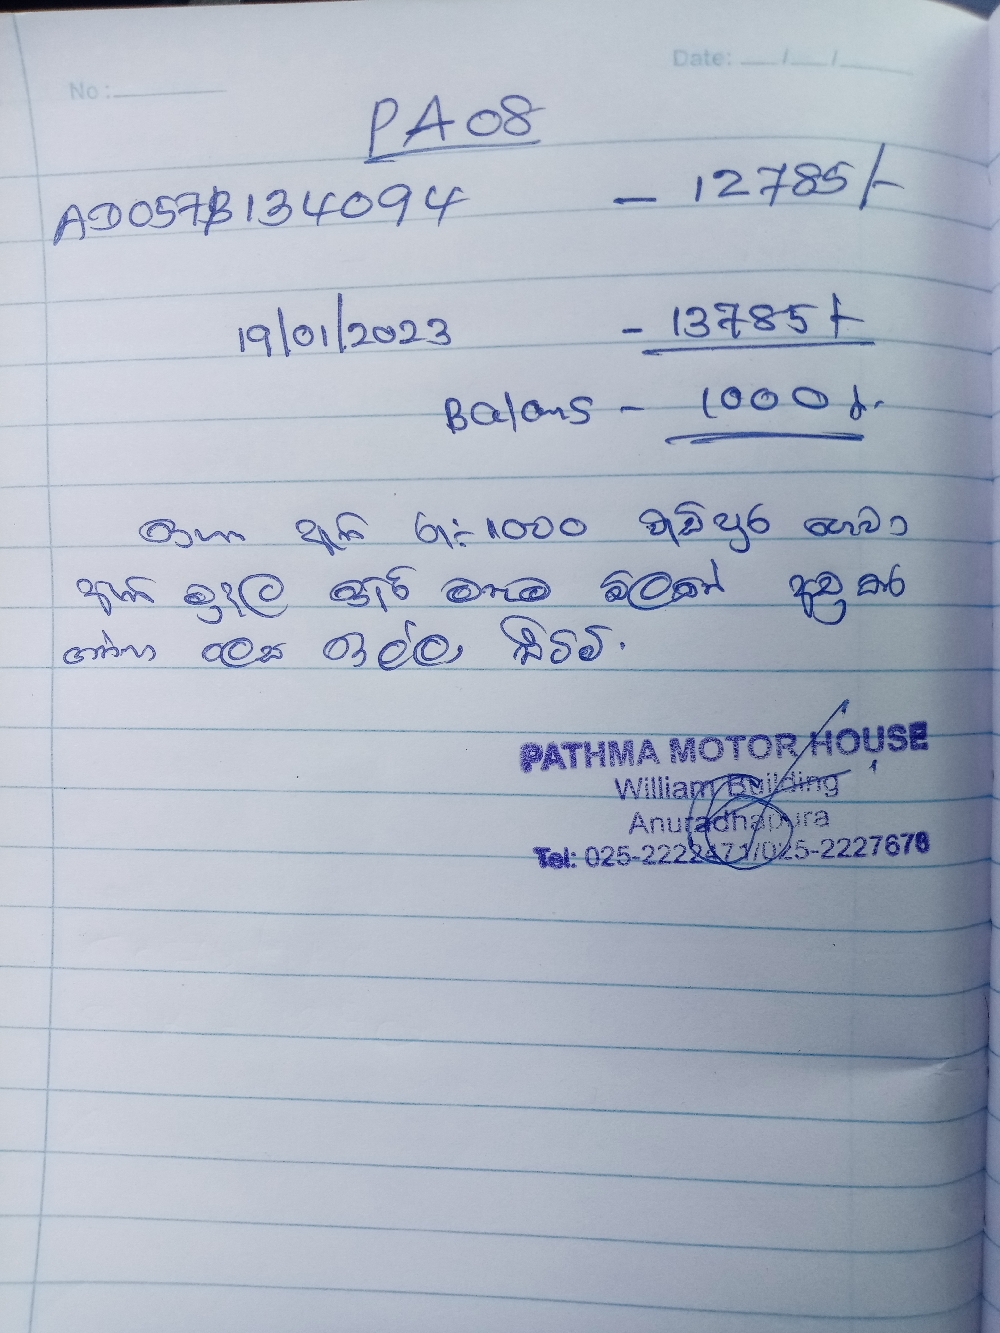 No :
Date: __/__/__
PA08
AD057B134094 - 12785/-
19/01/2023 - 13785/-
Balans - 1000/-
ඇති රු:- 1000 වැඩිපුර
ඇති මුදල මෙම බිලෙන් අඩු කර
ලෙස ඉල්ලා සිටිමි.
PATHMA MOTOR HOUSE
William Building
Anuradhapura
Tel: 025-2222471/025-2227676